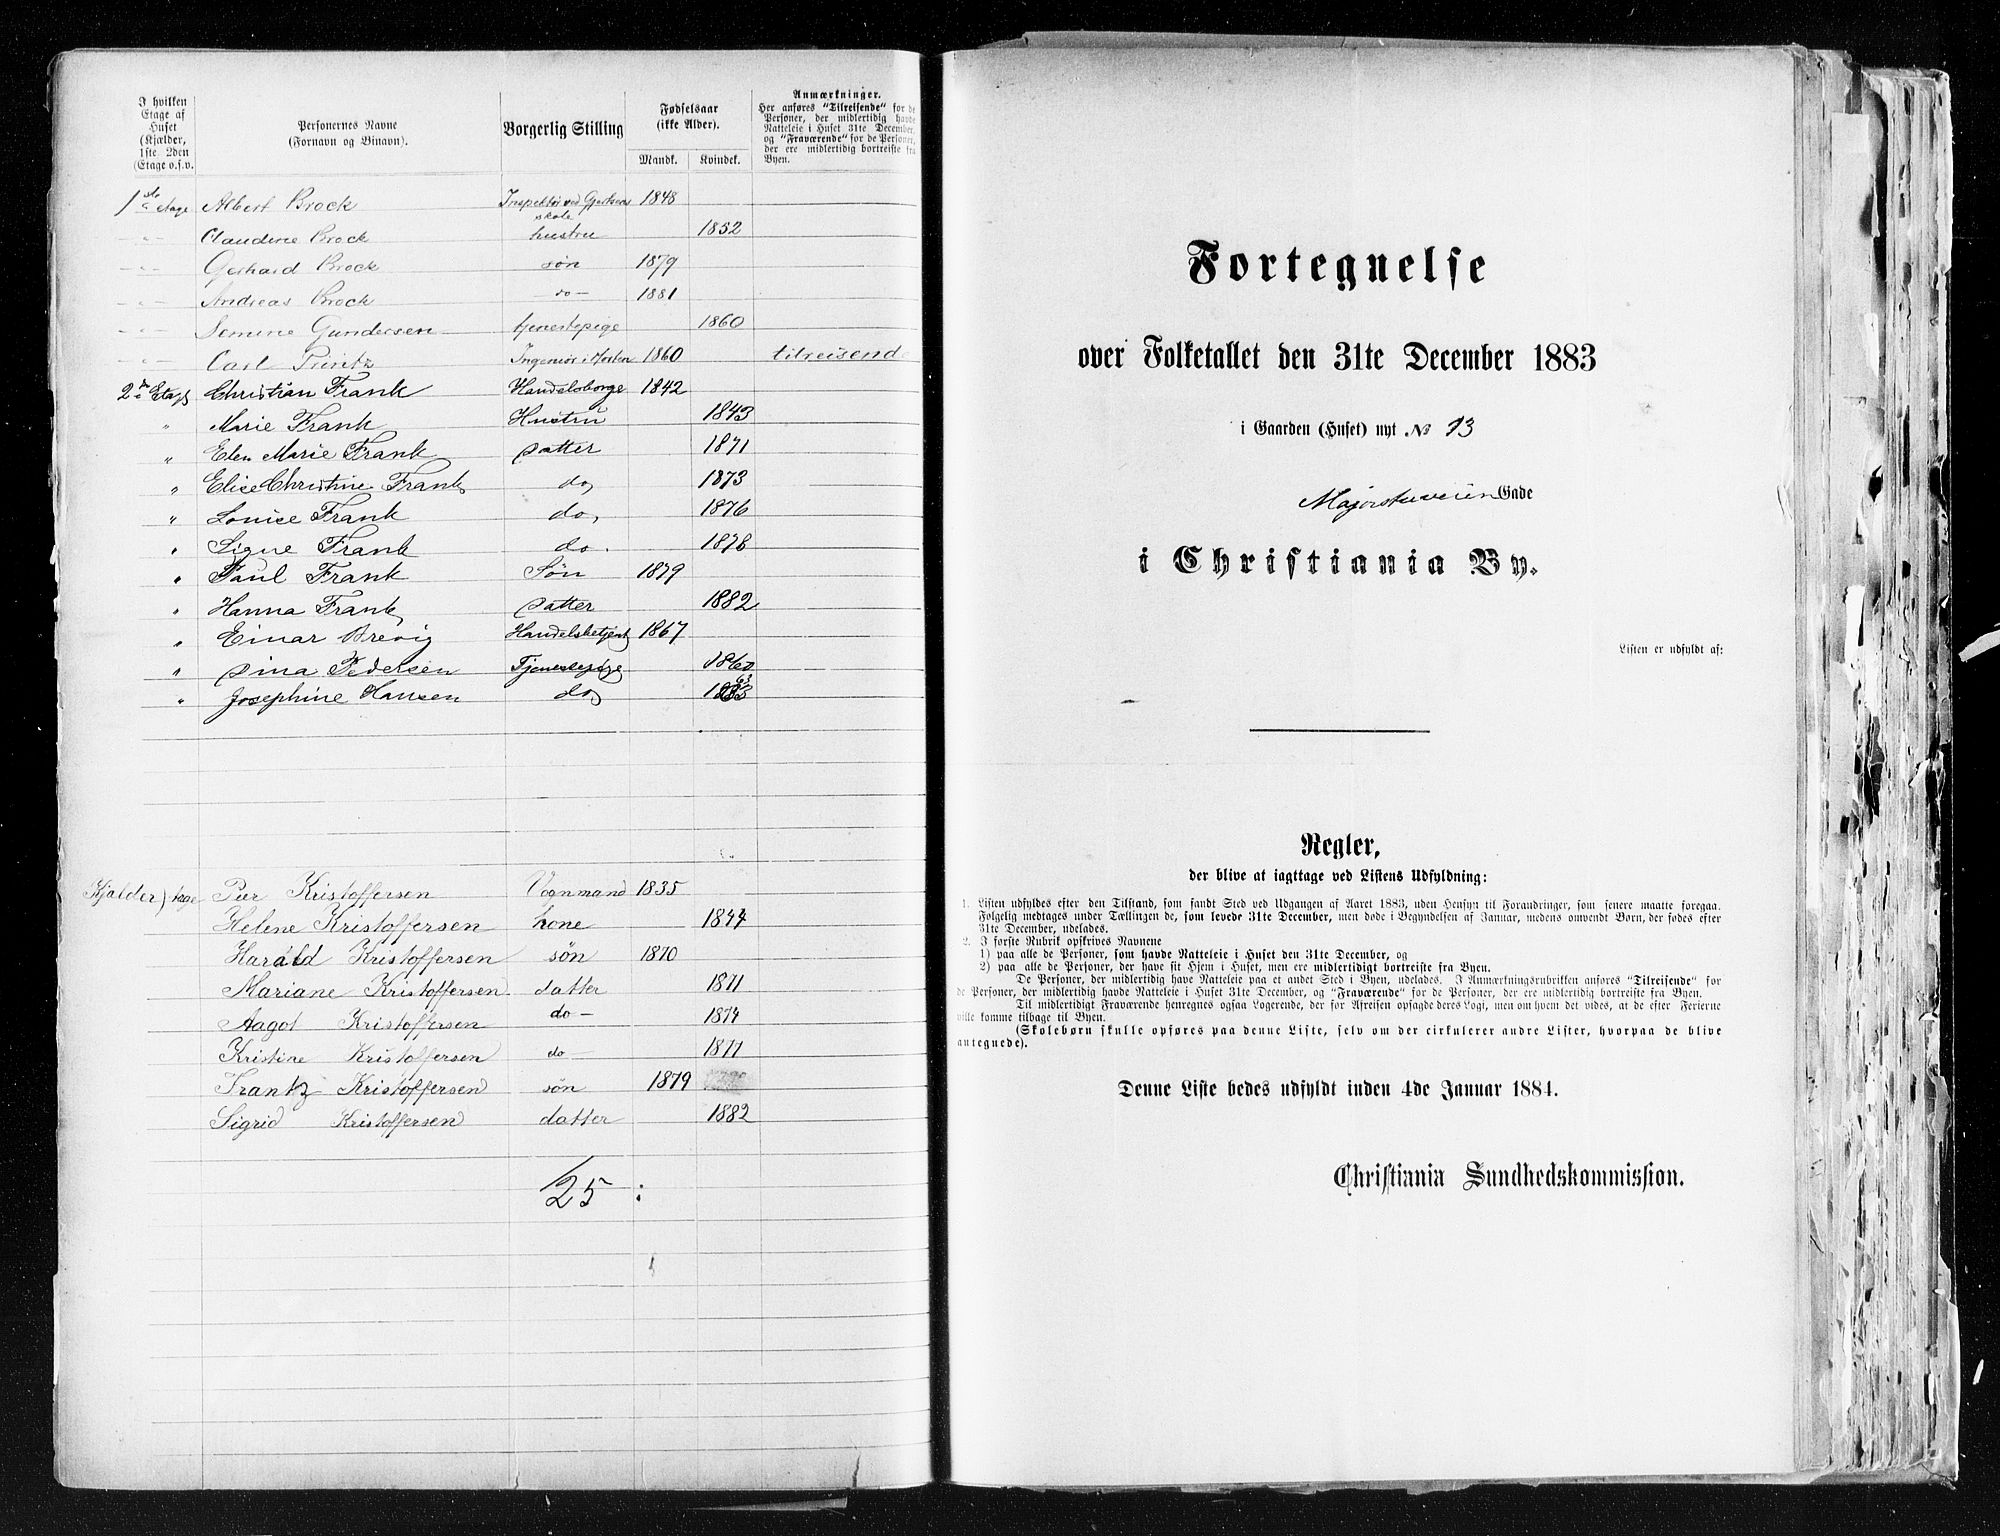 I hvilken
Etage af
Huset
(Kjælder,
1ste 2den
(Etage o.s.v.
Personernes Navne
(Fornavn og Binavn).
Borgerlig Stilling
Fødselsaar
(ikke Alder).
Mandk. Kvindek.
Anmærkninger.
Her anføres "Tilreisende" for de
Personer, der midlertidig havde
Natteleie i Huset 31te December,
og "Fraværende" for de Personer,
der ere midlertidig bortreiste fra
Byen.
1ste Etage Albert Brock Inspektør ved Gjertsens skole 1848
-"- Claudine Brock hustru 1852
-"- Gerhard Brock søn 1879
-"- Andreas Brock do- 1881
-"- Semine Gundersen tjenestepige 1860
-"- Carl Printz Ingeniør i Horten 1860 tilreisende
2den Etage Christian Frank Handelsborger 1842
" Marie Frank Hustru 1843
" Elen Marie Frank Datter 1871
" Elise Christine Frank do 1873
" Louise Frank do, 1876
" Signe Frank do. 1878
" Paul Frank Søn 1879
" Hanna Frank Datter 1882
" Einar Brevig Handelsbetjent 1867
" Dina Pedersen Tjenestepige 1860
" Josephine Hansen do 63
Kjælder etage Peer Kristoffersen Vognmand 1835
Helene Kristoffersen kone 1844
Harald Kristoffersen søn 1870
Mariane Kristoffersen datter 1871
Aagot Kristoffersen do- 1874
Kristine Kristoffersen do- 1877
Frantz Kristoffersen søn 1879
Sigrid Kristoffersen datter 1882
25
Fortegnelse
over Folketallet den 31te December 1883
i Gaarden (Huset) nyt № 13
Majorstuveien Gade
i Christiania By.
Listen er udfyldt af:
Regler,
der blive at iagttage ved Listens Udfyldning:
1. Listen udfyldes efter den Tilstand, som fandt Sted ved Udgangen af Aaret 1883, uden Hensyn til Forandringer, som senere maatte foregaa.
Følgelig medtages under Tællingen de, som levede 31te December, men døde i Begyndelsen af Januar, medens omvendt Børn, der fødes efter
31te December, udelades.
2. I første Rubrik opskrives Navnene
1) paa alle de Personer, som havde Natteleie i Huset den 31te December, og
2) paa alle de Personer, der have sit Hjem i Huset, men ere midlertidigt bortreiste fra Byen.
De Personer, der midlertidig have Natteleie paa et andet Sted i Byen, udelades. I Anmærkningsrubrikken anføres "Tilreisende" for
de Personer, der midlertidig havde Natteleie i Huset 31te December, og "Fraværende" for de Personer, der ere midlertidig bortreiste fra Byen.
Til midlertidigt Fraværende henregnes ogsaa Logerende, der før Afreisen opsagde deres Logi, men om hvem det vides, at de efter Ferierne
ville komme tilbage til Byen.
(Skolebørn skulle opføres paa denne Liste, selv om der cirkulerer andre Lister, hvorpaa de blive
antegnede).
Denne Liste bedes udfyldt inden 4de Januar 1884.
Christiania Sundhedskommission.